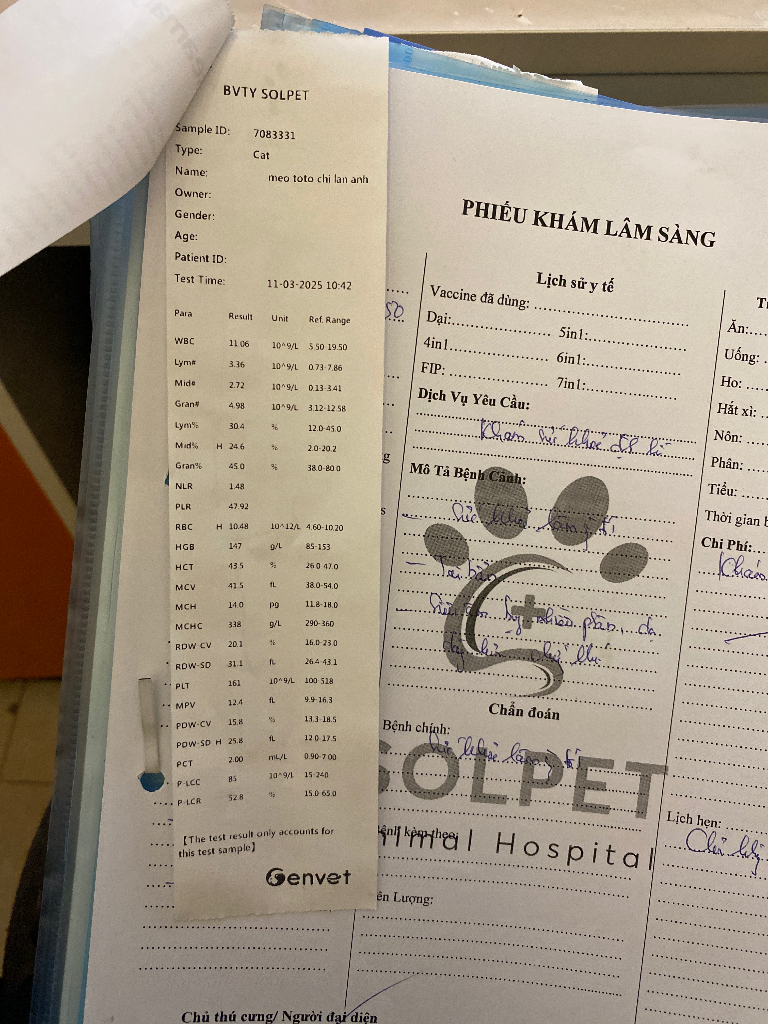 BVTY SOLPET
Sample ID: 7083331
Type: Cat
Name: meo toto chi lan anh
Owner:
Gender:
Age:
Patient ID:
Test Time: 11-03-2025 10:42
Para Result Unit Ref. Range
WBC 11.06 10^9/L 5.50-19.50
Lym# 3.36 10^9/L 0.73-7.86
Mid# 2.72 10^9/L 0.13-3.41
Gran# 4.98 10^9/L 3.12-12.58
Lym% 30.4 % 12.0-45.0
Mid% H 24.6 % 2.0-20.2
Gran% 45.0 % 38.0-80.0
NLR 1.48
PLR 47.92
RBC H 10.48 10^12/L 4.60-10.20
HGB 147 g/L 85-153
HCT 43.5 % 26.0-47.0
MCV 41.5 fL 38.0-54.0
MCH 14.0 pg 11.8-18.0
MCHC 338 g/L 290-360
RDW-CV 20.1 % 16.0-23.0
RDW-SD 31.1 fL 26.4-43.1
PLT 161 10^9/L 100-518
MPV 12.4 fL 9.9-16.3
PDW-CV 15.8 % 13.3-18.5
PDW-SD H 25.8 fL 12.0-17.5
PCT 2.00 mL/L 0.90-7.00
P-LCC 85 10^9/L 15-240
P-LCR 52.8 % 15.0-65.0
【The test result only accounts for
this test sample】
Genvet
PHIẾU KHÁM LÂM SÀNG
50
Lịch sử y tế
Vaccine đã dùng:
Dại: 5in1:
4in1 6in1:
FIP: 7in1:
Dịch Vụ Yêu Cầu:
Khám sức khoẻ
Mô Tả Bệnh Cảnh:
Chẩn đoán
Bệnh chính:
SOLPET
kèm theo:
Animal Hospital
Lượng:
Ăn:
Uống:
Ho:
Hắt xì:
Nôn:
Phân:
Tiểu:
Thời gian
Chi Phí:
Khám
Lịch hẹn:
Chủ thú cưng/ Người đại diện